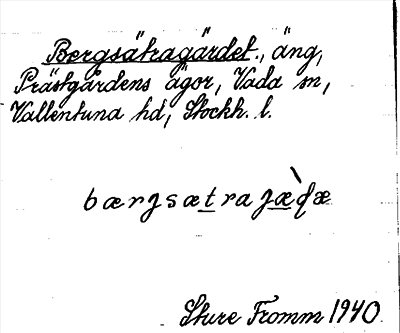 Bergsätragärdet., äng,
Prästgårdens ägor, Vada sn,
Vallentuna hd, Stockh. l.
bærgsætragæ̀ɖæ
Sture Fromm 1940